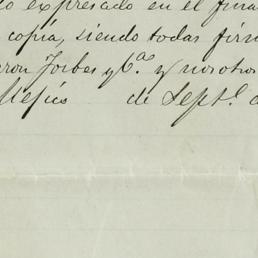 lo expresado en el fina
copia, siendo todas firm
ron Forbes y Cᵃ. y nosotro
Mejico de Septᵉ. d